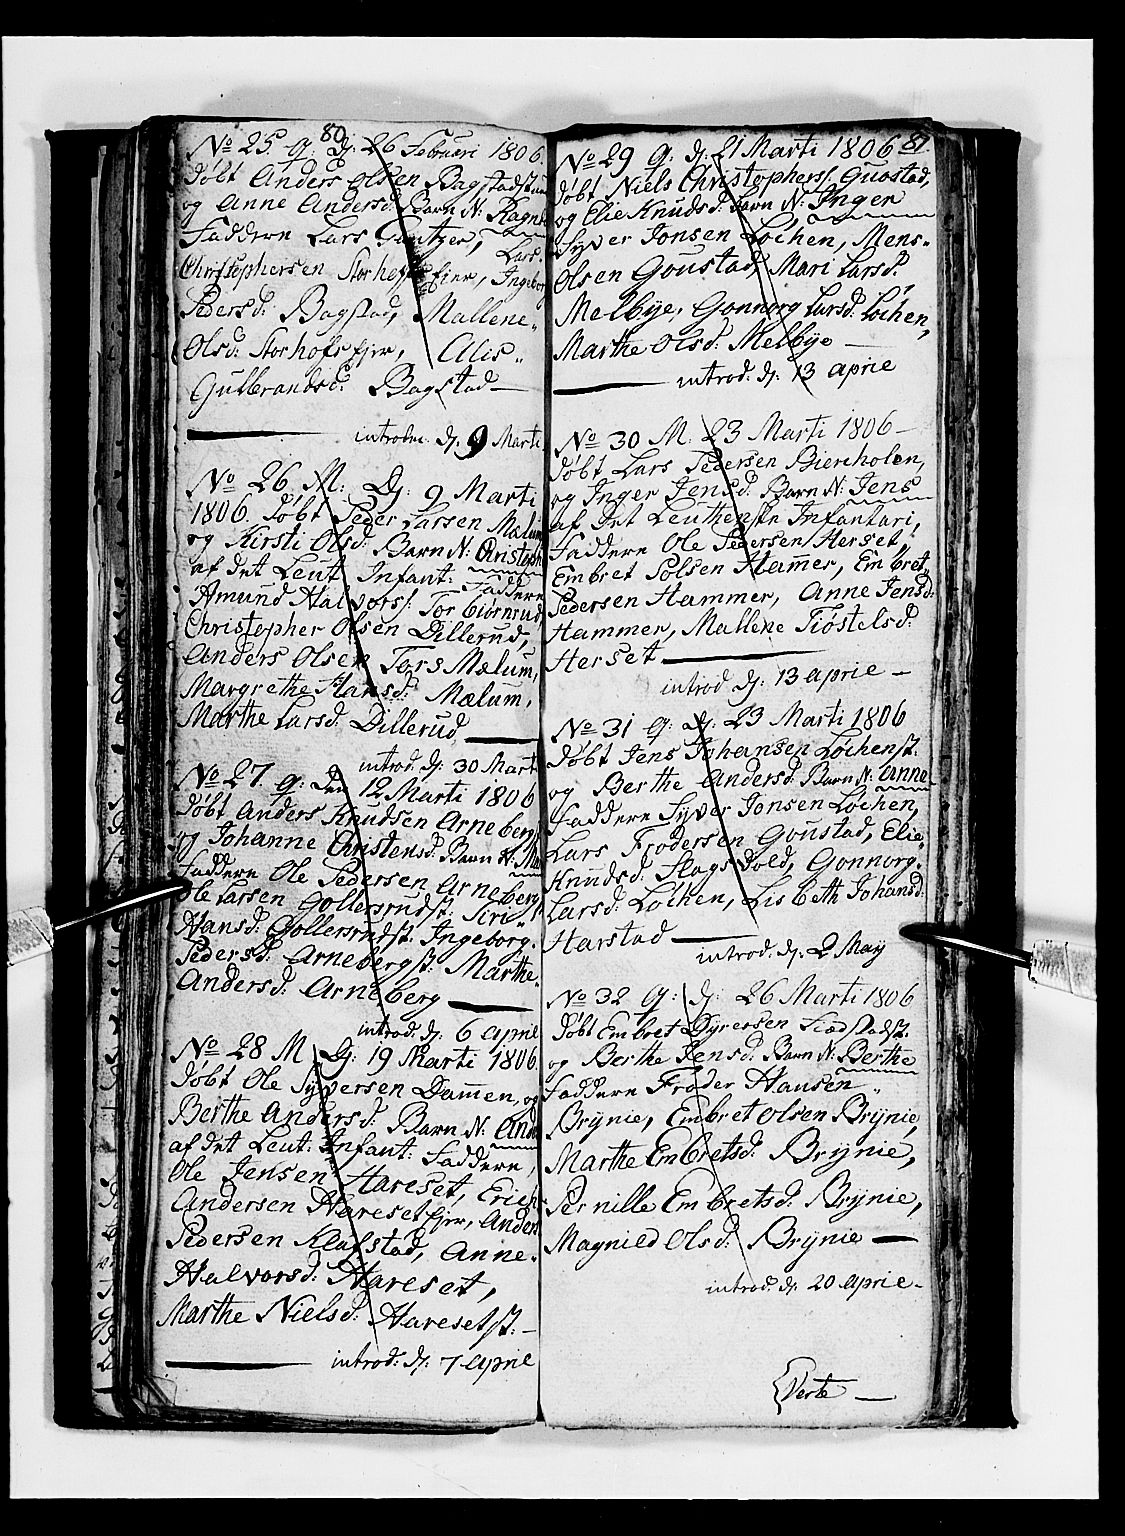 80
No 25 q: dj: 26 Februari 1806.
døbt Anders Olsen Bagstadstuen
og Anne Andersd: Barn N: Ragne
Faddere Lars Lars
Christophersen Storhoffs fier, Ingeborg
Pedersd: Bagstad, Mallene
Olsd: Storhofs fjer, Alis
Gulbrandsd: Bagstad —
introdu: dj: 9 Marti
No 26 M: Dj: 9 Marti
1806. døbt Peder Larsen Mælum
og Kirsti Olsd: Barn N: Christoph
af det Leut Infant: Faddere
Amund Halvors: Tor Biørnsrud,
Christopher Olsen Dillerud,
Anders Olsen Tors Mælum,
Margrethe Hansd: Mælum,
Marthe Larsd: Dillerud
introd: dj: 30 Marti
No 27 q: Den 12 Marti 1806
døbt Anders Knudsen Arneberg
og Johanne Christensd: Barn N: Ma
Faddere Ole Pedersen Arneberg
Ole Larsen Gollersrudst: Siri
Hansd: Gollersrudst. Ingeborg
Pedersd: Arnebergst: Marthe
Andersd: Arneberg
introd: dj: 6 Aprie
No 28 M Dj: 19 Marti 1806.
døbt Ole Syversen Dam̅en, og
Berthe Andersd: Barn N: And
af det Leut: Infant: Faddere,
Ole Jensen Hareset, Erich
Andersen Hareset fjer, Anders
Pedersen Klafstad, Anne
Halvorsd: Hareset,
Marthe Nielsd: Haresetst: —
introd: dj: 7 Aprie
81
No 29 q: dj: 21 Marti 1806
døbt Niels Christophers: Gustad,
og Elie Knudsd: Barn N: Inger
Syver Jonsen Løchen, Mens
Olsen Goustad, Mari Larsd:
Melbye, Gonnorg Larsd: Løchen,
Marthe Olsd: Melbye —
introd: dj: 13 Aprie
No 30 M: 23 Marti 1806 —
døbt Lars Pedersen Biercholen,
og Inger Jensd: Barn N: Jens
af det Leuthenske Infantari,
Faddere Ole Pedersen Herset,
Embret Polsen Ham̅er, Embret
Pedersen Hammer, Anne Jensd:
Hammer, Mallene Tiøstelsd:
Herset
introd dj: 13 Aprie —
No 31 q: dj: 23 Marti 1806
døbt Jens Johansen Løchenst.
og Berthe Andersd: Barn N: Anne
Faddere Syver Jonsen Løchen,
Lars Frodersen Goustad, Elie
Knudsd: Flagsvold, Gonnorg
Larsd: Løchen, Lisbeth Johansd:
Harstad
introd: dj: 2 May
No 32 q: dj: 26 Marti 1806
døbt Embret Dyresen
og Berthe Jensd: Barn N: Berthe
Faddere Froder Hansen
Brÿnie, Embret Olsen Brÿnie,
Marthe Embretsd: Brÿnie,
Pernille Embretsd: Brÿnie,
Magnild Olsd: Brÿnie —
introd: dj: 20 Aprie —
Verte —